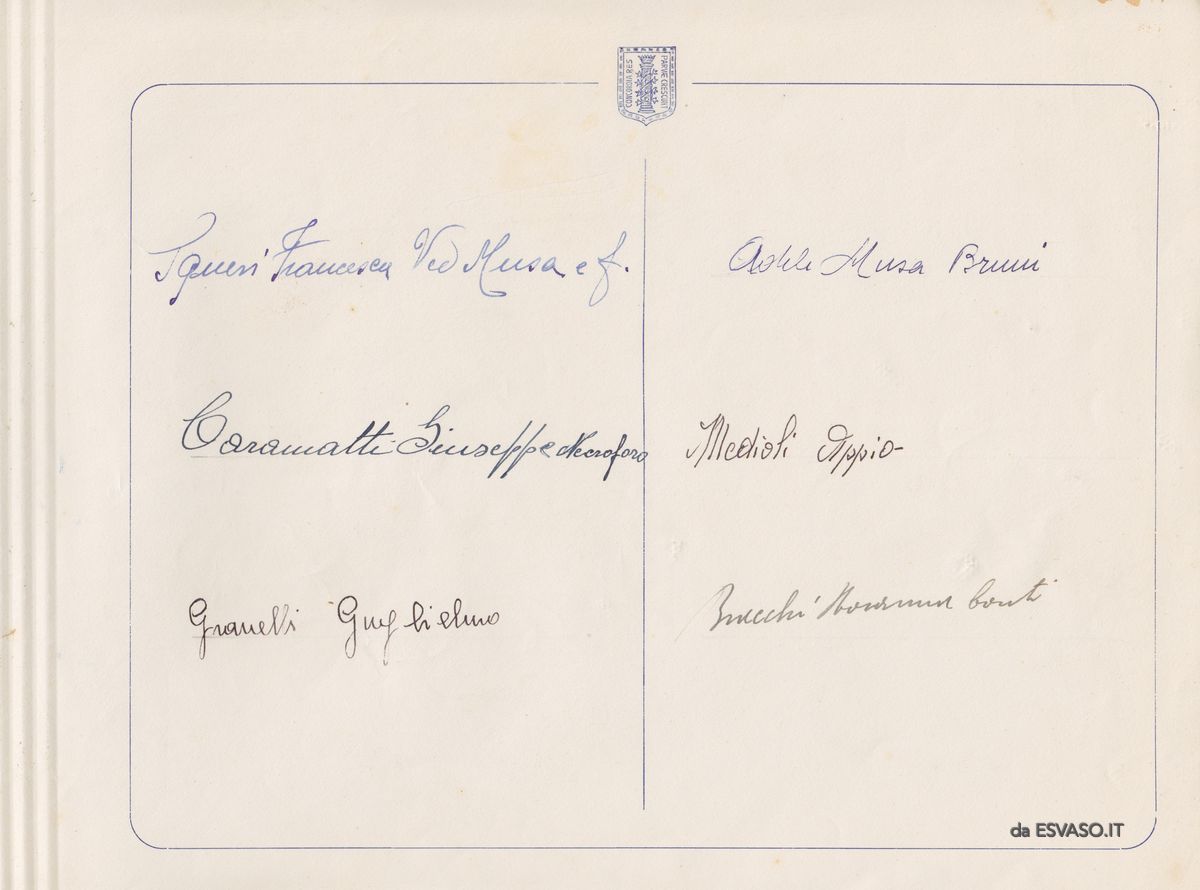 CONCORDIA RES
PARVAE CRESCUNT
Squeri Francesca Ved Musa e f.
Adele Musa Bruni
Caramatti Giuseppe Necroforo
Medioli Appio
Granelli Guglielmo
Conti
da ESVASO.IT